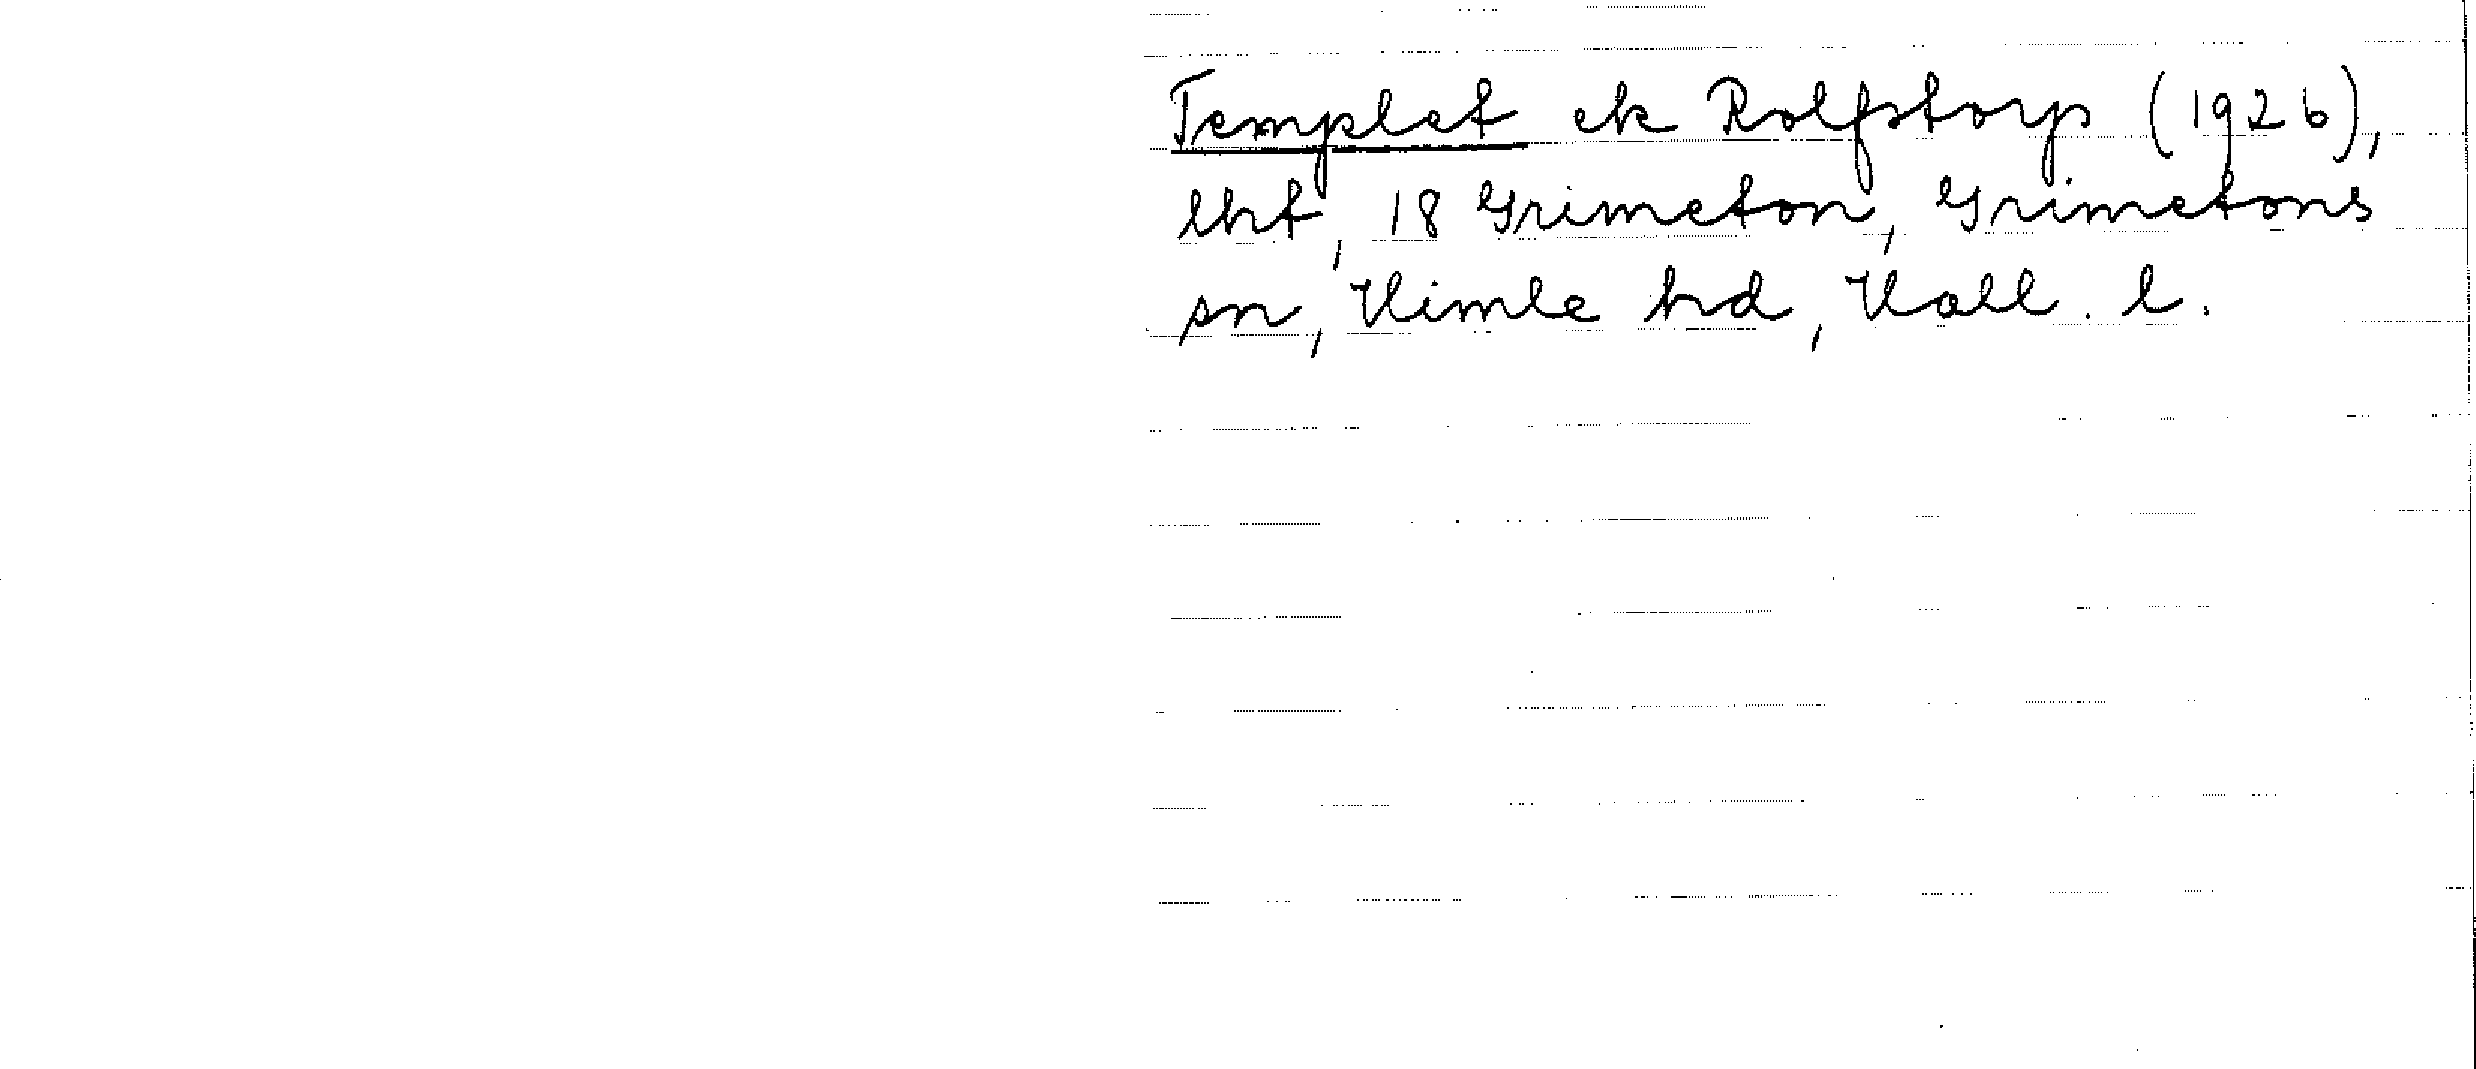 Templet ek Rolfstorp (1926),
lht, 18 Grimeton, Grimetons
sn, Himle hd, Hall. l.